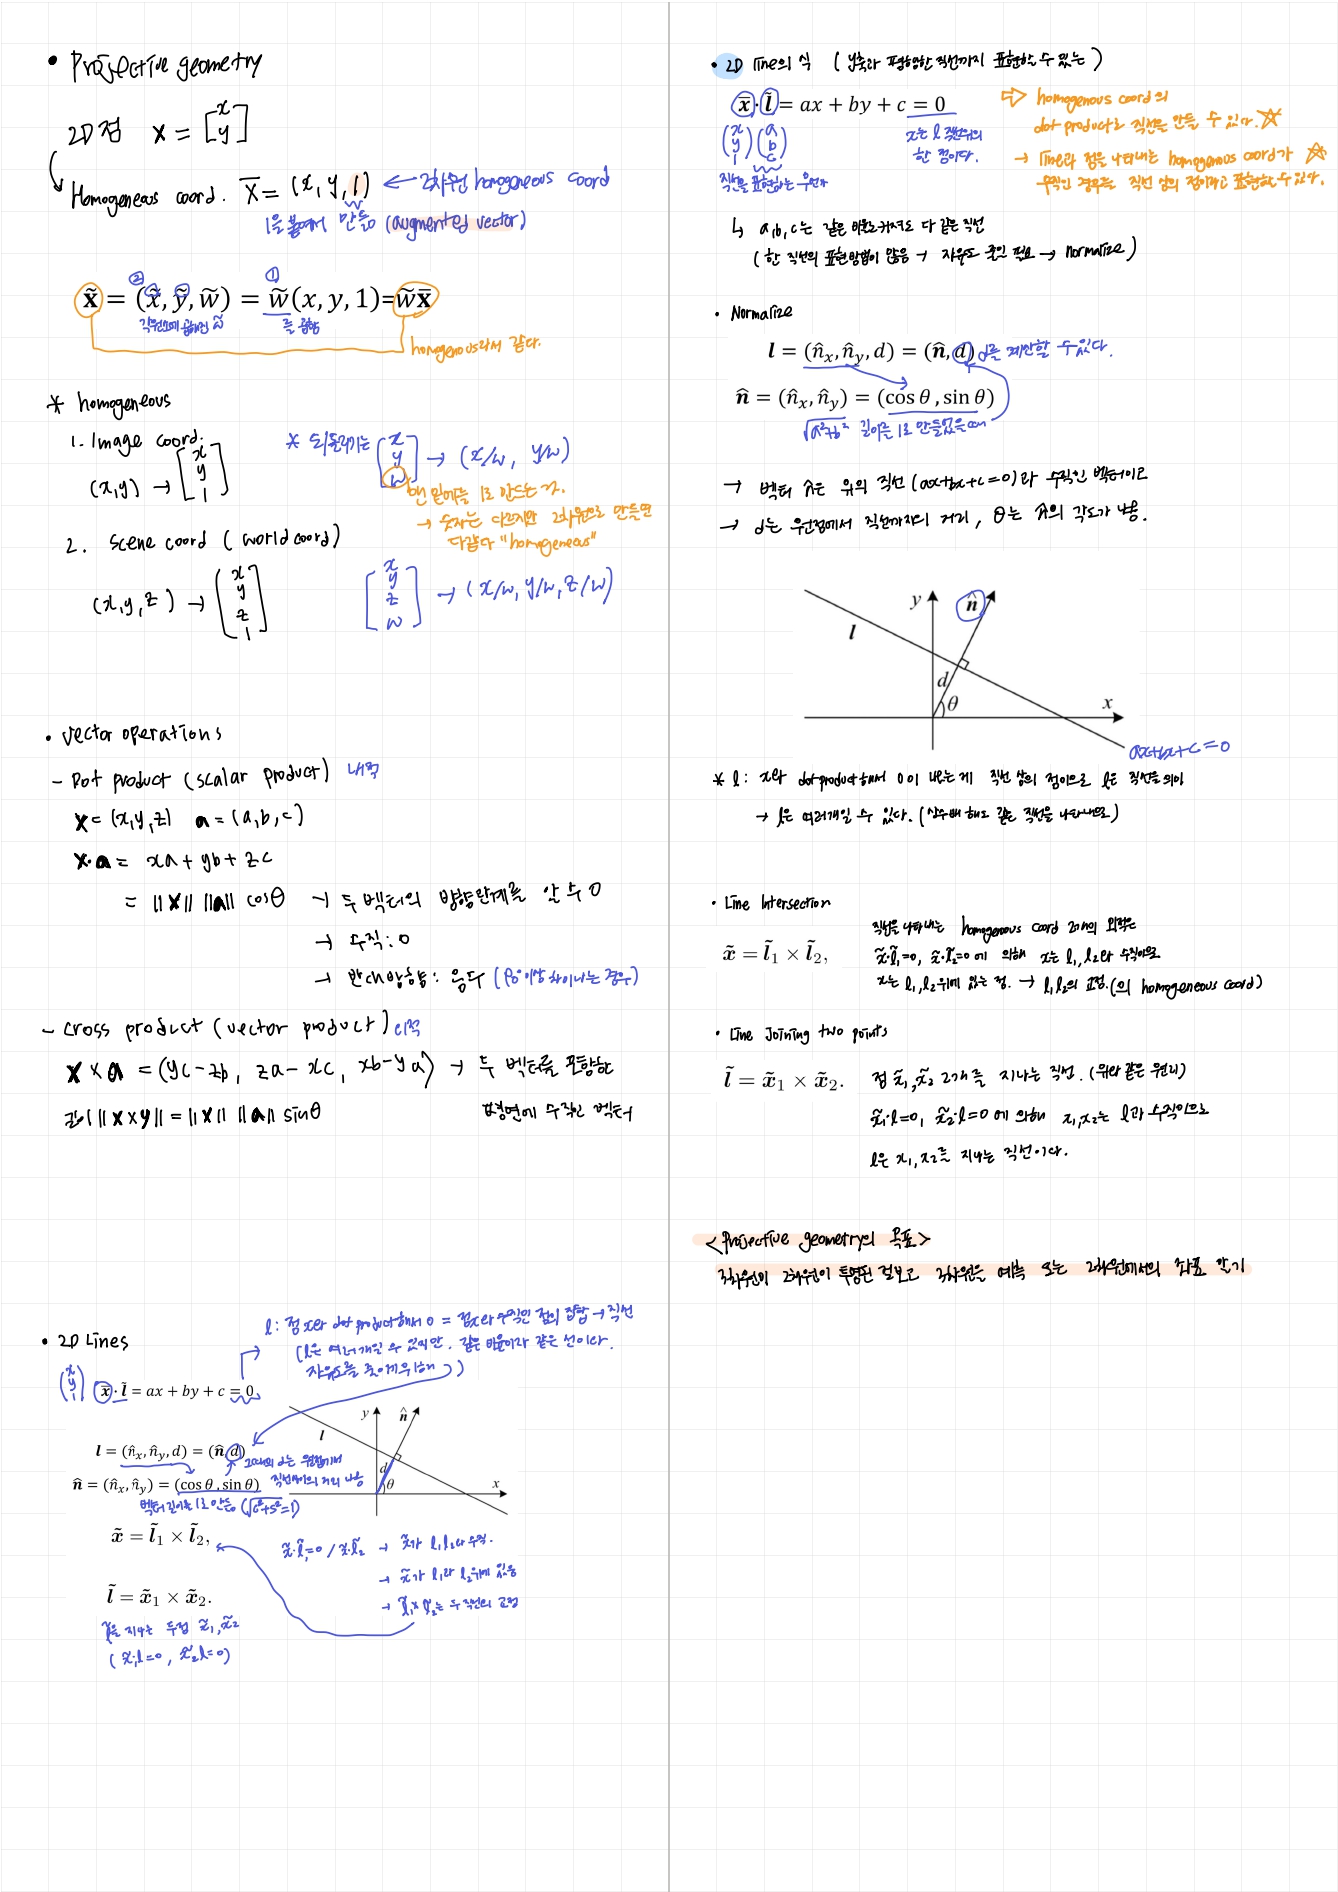 • Projective geometry
2D점 x = [x y]
Homogeneous coord. x̅ = (x, y, 1) ← 2차원 homogeneous coord
1을 붙여서 만듦 (augmented vector)
② ①
x̃ = (x̃, ỹ, w̃) = w̃(x, y, 1)=w̃x̅
각원소에 곱해진 w̃ 를 곱함
homogenous라서 같다.
* homogeneous
1. Image coord.
(x,y) → [x y 1]
* 되돌리기는 [x y w] → (x/w, y/w)
맨 밑에를 1로 만드는 것.
→ 숫자는 다르지만 2차원으로 만들면
다같다 "homogeneous"
2. Scene coord (world coord)
(x,y,z) → [x y z 1]
[x y z w] → (x/w, y/w, z/w)
• Vector operations
- Dot product (scalar product) 내적
x = (x,y,z) a = (a,b,c)
x·a = xa + yb + zc
= ||x|| ||a|| cosθ → 두 벡터의 방향관계를 알 수 O
→ 수직: 0
→ 반대방향: 음수 (90° 이상 차이나는 경우)
- cross product (vector product) 외적
x × a = (yc-zb, za-xc, xb-ya) → 두 벡터를 포함한
평면에 수직인 벡터
||x×y|| = ||x|| ||a|| sinθ
• 2D Lines
l : 점x와 dot product해서 0 = 점x와 수직인 점의 집합 → 직선
(l은 여러개일 수 있지만. 같은 비율이라 같은 선이다.
자유도를 줄이게위해 )
(x y 1) x̅ · l̃ = ax + by + c = 0
l = (n̂x, n̂y, d) = (n̂, d)
이때의 d는 원점에서
직선까지의 거리 나옴
n̂ = (n̂x, n̂y) = (cos θ , sin θ)
벡터 길이를 1로 만듦 (√c²+s²=1)
y n̂ l d θ x
x̃ = l̃1 × l̃2,
x̃·l̃1=0 / x̃·l̃2 → x̃가 l1,l2와 수직.
→ x̃가 l1과 l2위에 있음
→ l̃1×l̃2는 두 직선의 교점
l̃ = x̃1 × x̃2.
l̃을 지나는 두점 x̃1, x̃2
( x̃1l=0 , x̃2l=0)
• 2D line의 식 ( y축과 평행한 직선까지 표현할 수 있는 )
x̅ · l̃ = ax + by + c = 0
(x y 1) (a b c)
직선을 표현하는 우변
x는 l 직선위의
한 점이다.
⇨ homogenous coord의
dot product로 직선을 만들 수 있다. ☆
→ line과 점을 나타내는 homogenous coord가 ☆
수직인 경우를 직선 상의 점이라고 표현할 수 있다.
↳ a,b,c는 같은 비율로 커져도 다 같은 직선
( 한 직선의 표현방법이 많음 → 자유도 줄인 필요 → normalize )
• Normalize
l = (n̂x, n̂y, d) = (n̂, d) d를 제한할 수 있다.
n̂ = (n̂x, n̂y) = (cos θ , sin θ)
√a²+b² 길이를 1로 만들었을 때
→ 벡터 n̂은 위의 직선 (ax+bx+c=0)과 수직인 벡터이고
→ d는 원점에서 직선까지의 거리, θ는 n̂의 각도가 나옴.
y n̂ l d θ x
ax+bx+c=0
* l : x와 dot product해서 0이 나오는게 직선 상의 점이므로 l은 직선을 의미
→ l은 여러개일 수 있다. (상수배 해도 같은 직선을 나타내므로)
• Line Intersection
x̃ = l̃1 × l̃2,
직선을 나타내는 homogenous coord 2개의 외적은
x̃·l̃1=0, x̃·l̃2=0 에 의해 x는 l1, l2와 수직이므로
x는 l1, l2위에 있는 점. → l1,l2의 교점.(의 homogeneous coord)
• Line Joining two points
l̃ = x̃1 × x̃2.
점 x̃1, x̃2 2개를 지나는 직선. (위와 같은 원리)
x̃1·l=0, x̃2·l=0 에 의해 x1, x2는 l과 수직이므로
l은 x1, x2를 지나는 직선이다.
<Projective geometry의 목표>
3차원이 2차원이 투영된 걸보고 3차원을 예측 또는 2차원에서의 좌표 알기